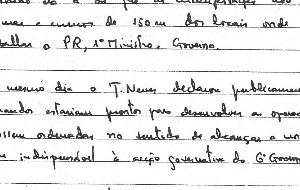 a menos de 150 m dos locais onde
o PR, 1º Ministro, Governo.
mesmo dia o T. Neves declarou publicamen
estariam prontos para desenvolver as opera
ordenadas no sentido de alcançar a
indispensável à acção governativa do 6º Govern